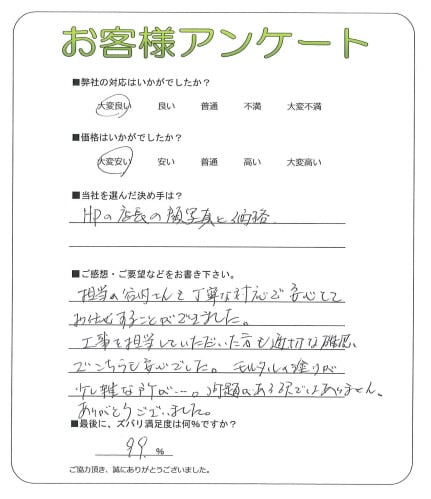 お客様アンケート
■弊社の対応はいかがでしたか?
大変良い 良い 普通 不満 大変不満
■価格はいかがでしたか?
大変安い 安い 普通 高い 大変高い
■当社を選んだ決め手は?
HPの店長の顔写真と価格
■ご感想・ご要望などをお書き下さい。
担当の さんも丁寧な対応で安心して
お任せすることができました。
工事を担当していただいた方も適切な確認
でこちらも安心でした。 モルタルの塗りが
少し雑な所が…。問題のある訳ではありません。
ありがとうございました。
■最後に、ズバリ満足度は何%ですか?
99 %
ご協力頂き、誠にありがとうございました。